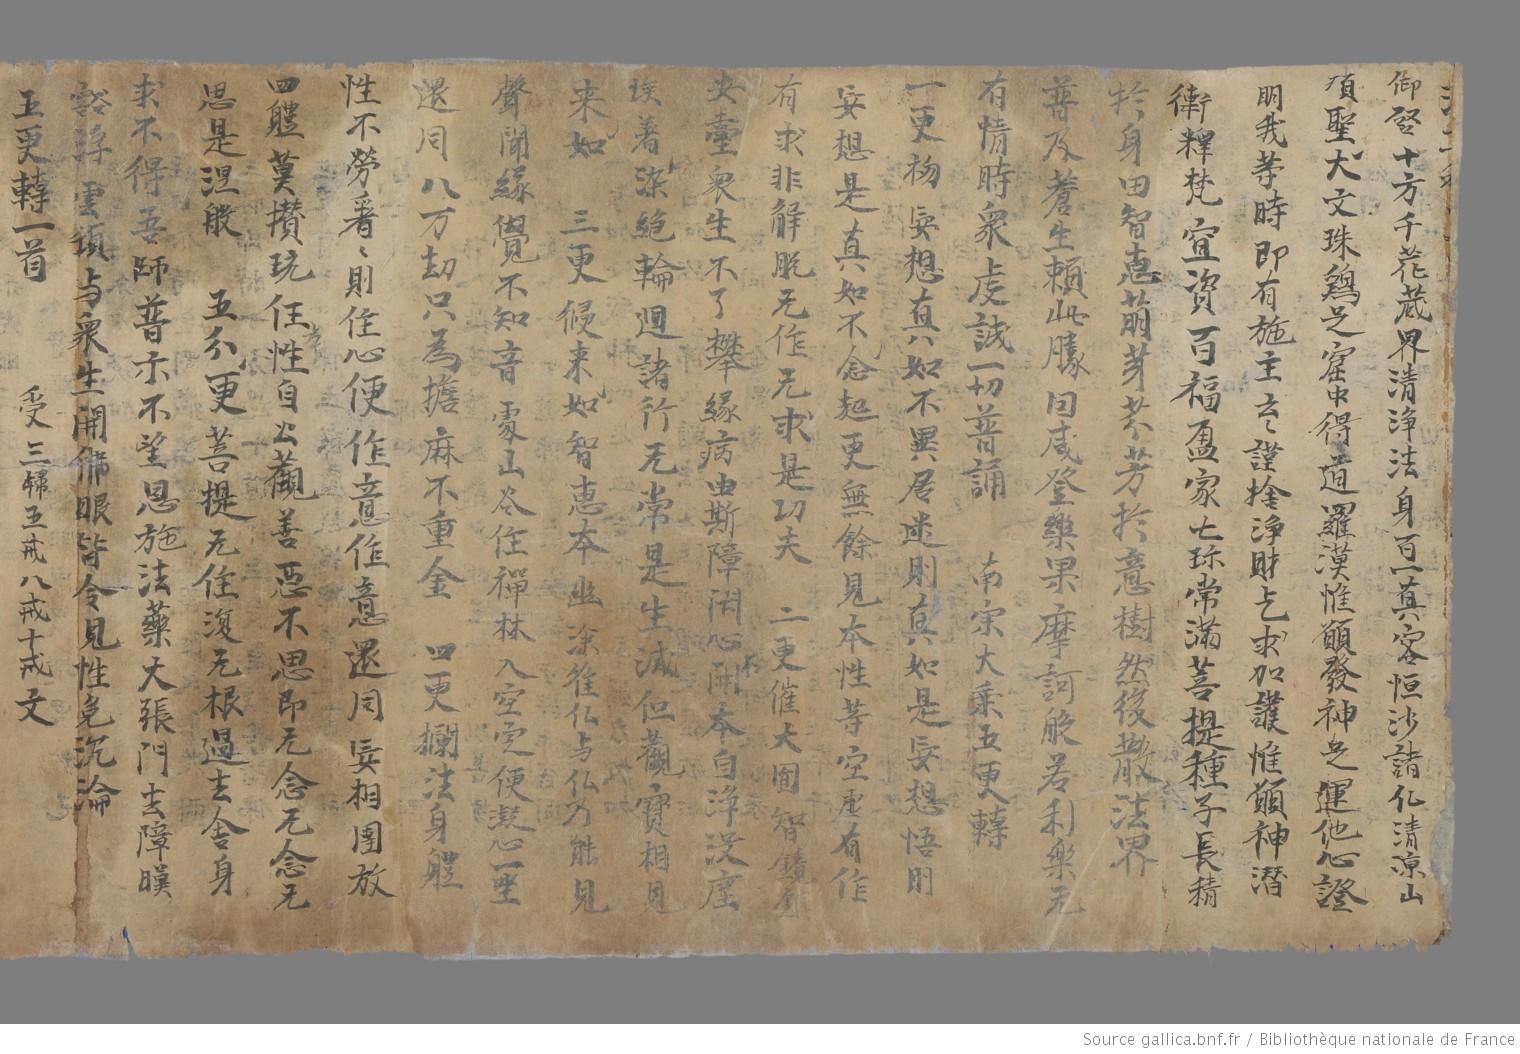 御啓十方千花蔵界清浄法身百一真容恒沙諸仏清凉山
頂聖大文珠鷄足窟中得道羅漢惟願發神足運他心證
明我等時即有施主云〻謹捨浄財乞求加護惟願神潜
衛釋梵宜資百福盈家七珎常滿菩提種子長積
扵身田智惠萌芽芬芳扵意樹然後散法界
普及蒼生賴此勝因咸登樂果摩訶般若利樂无
有情時衆虔誠一切普誦 南宗大乗五更轉
一更初妄想真如不異居迷則真如是妄想悟則
妄想是真如不念起更無餘見本性等空虚有作
有求非解脱无作无求是功夫 二更催大圎智鏡
央臺衆生不了攀緣病由斯障閉心不開本自浄没塵
埃着染絶輪迴諸行无常是生滅但觀實相見
来如 三更 侵来如智恵本幽深隺仏与仏乃能見
聲聞緣覺不知音處山谷住禪林入空定便凝心一坐
還同八万劫只為擔麻不重金 四更攔法身體
性不勞看〻則住心便作意作意還同妄相團放
四體莫攢玩任性自公觀善惡不思即无念无念无
思是涅般 五分更菩提无住復无根過去舍身
求不得吾師普示不望恩施法藥大張門去障瞙
豁浮雲頓与衆生開佛眼皆令見性免沉淪
五更轉一首 受三歸五戒八戒十戒文
Source gallica.bnf.fr / Bibliothèque nationale de France